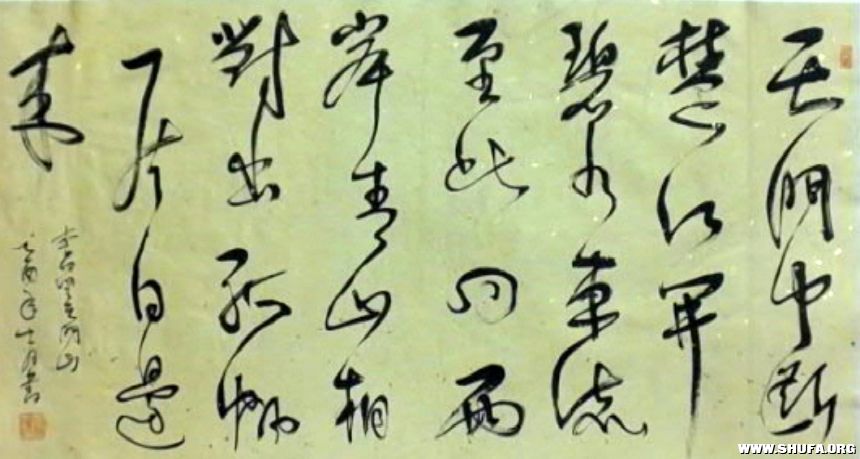 天門中斷
楚江開
碧水東流
至此回兩
岸青山相
對出孤帆
一片日邊
來
李白望天門山
乙酉年月書
WWW.SHUFA.ORG